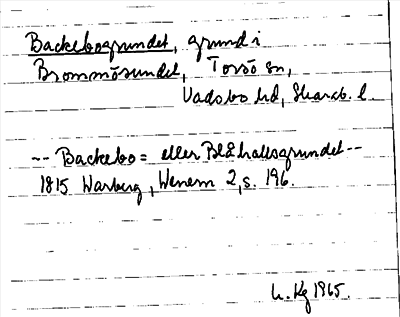 Backebogrundet, grund i
Brommösundet, Torsö sn,
Vadsbo hd, Skarab. l.
-- Backebo= eller Blåhallsgrundet--
1815 Warberg, Wenern 2, s. 196.
h. Kg 1965.